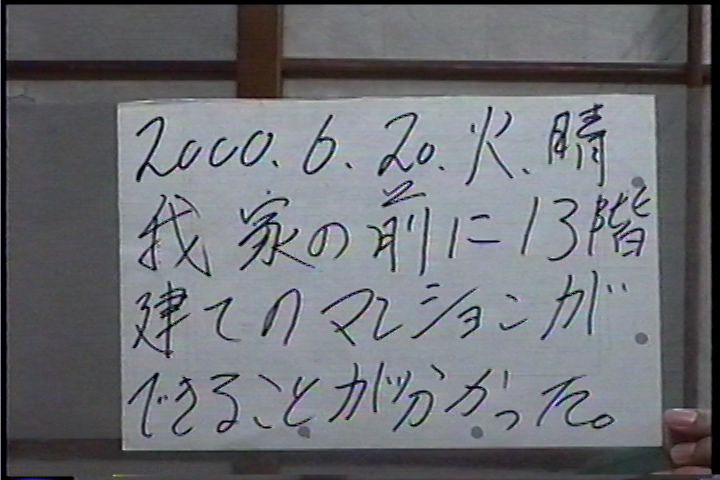 2000.6.20.火.晴
我家の前に13階
建てのマンションが
できることが分かった。